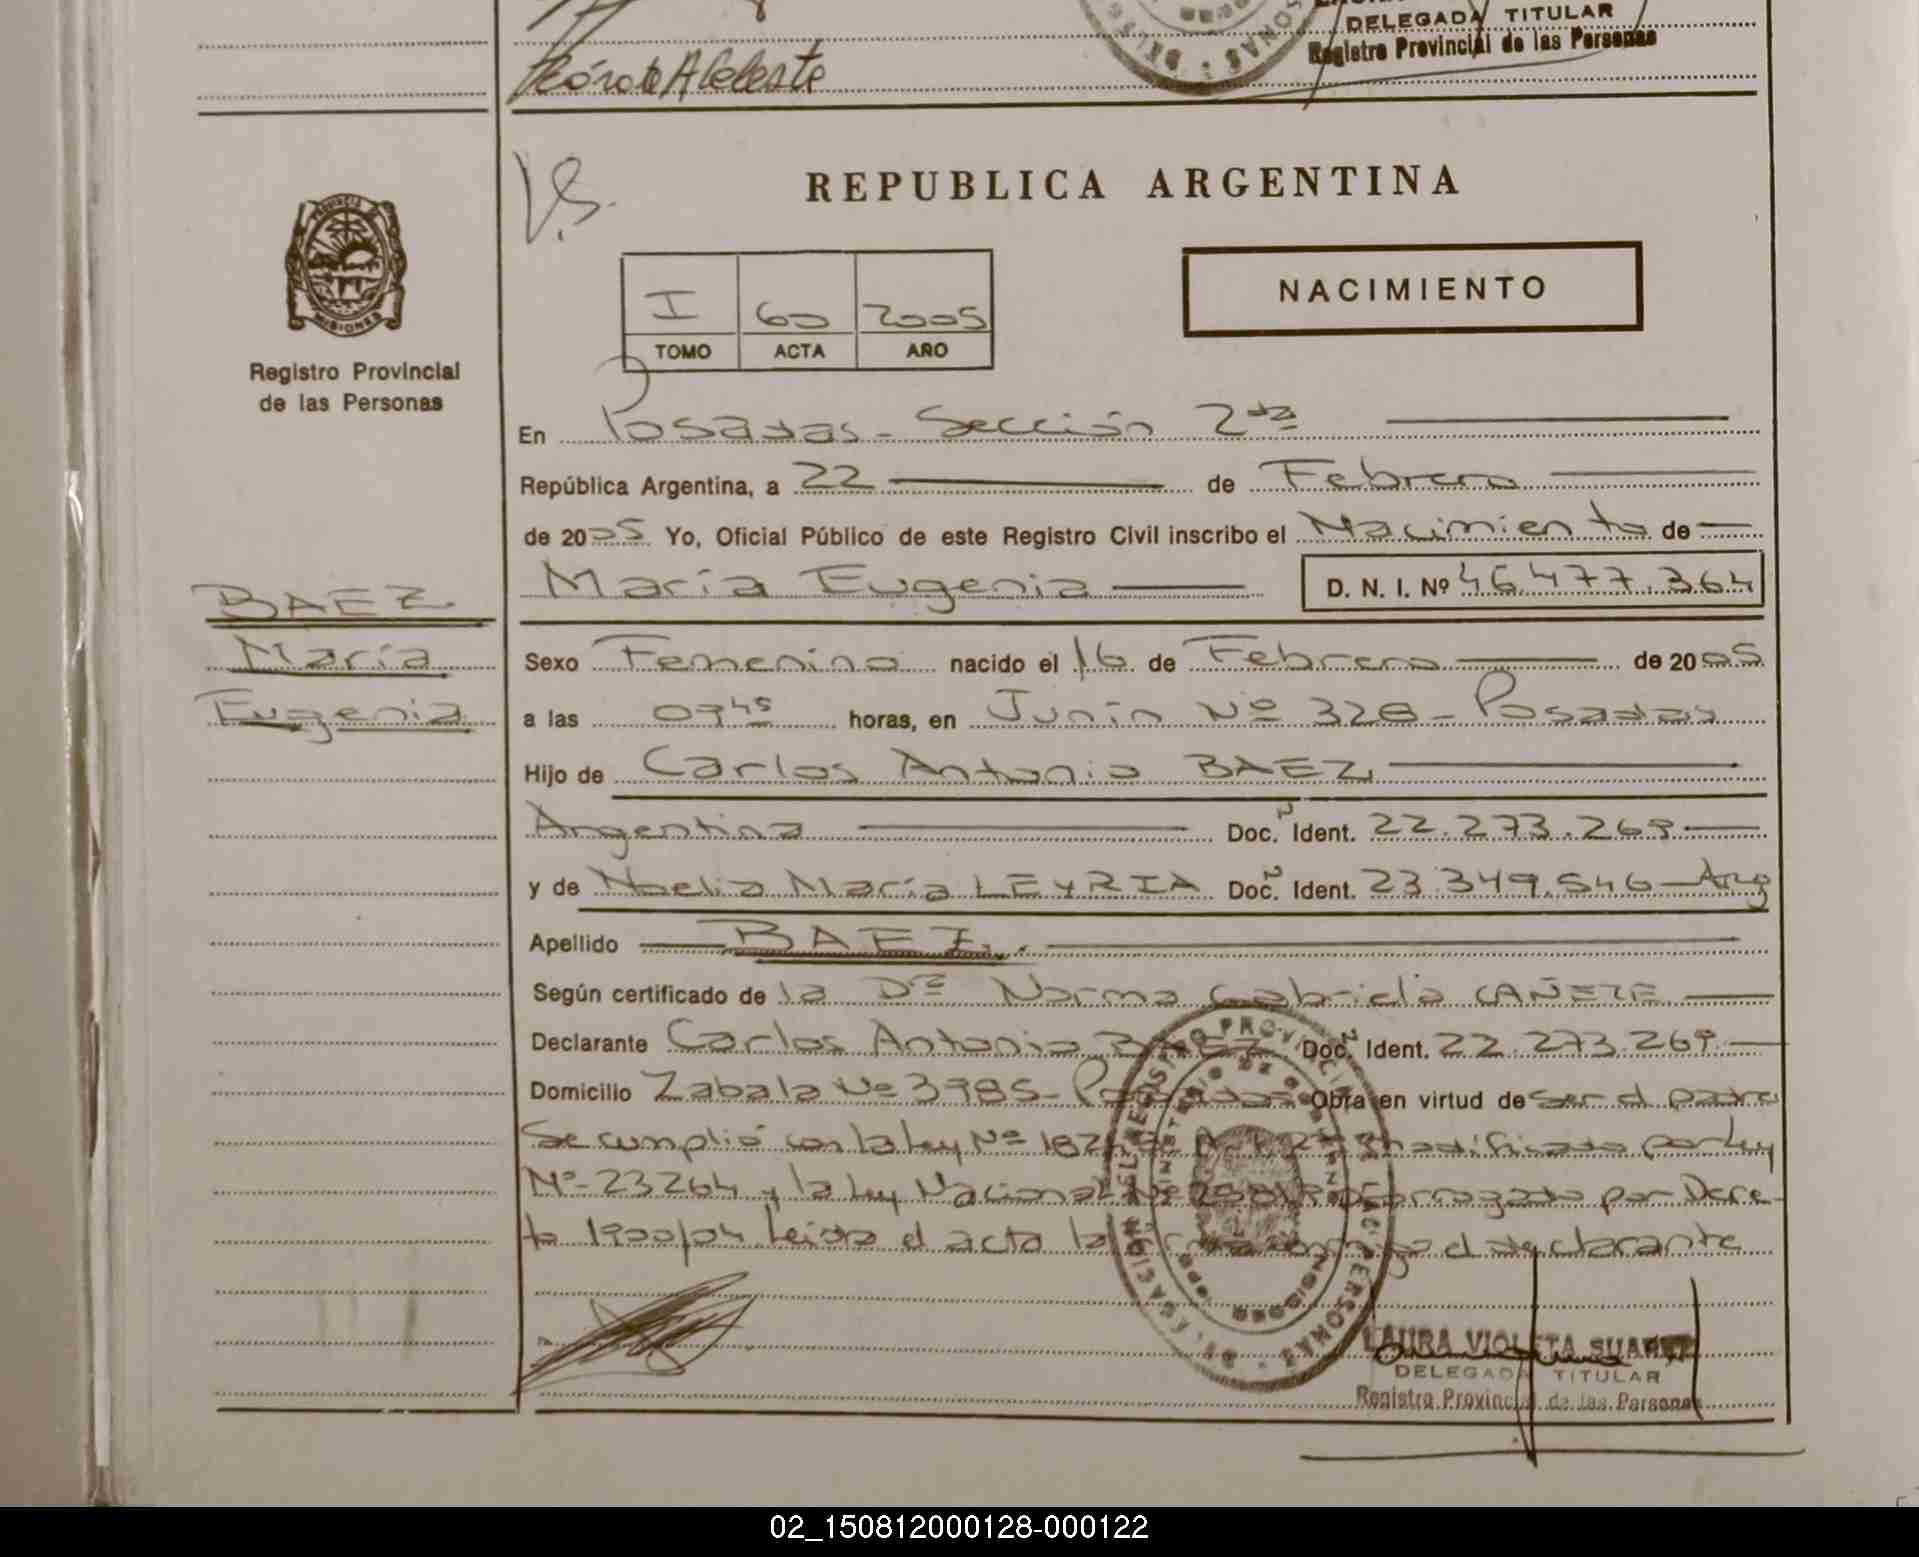 DELEGADA TITULAR
Registro Provincial de las Personas
Celeste
V.S.
REPUBLICA ARGENTINA
NACIMIENTO
I 60 2005
TOMO ACTA AÑO
PROVINCIA DE
MISIONES
Registro Provincial
de las Personas
En Posadas - Sección 2da
República Argentina, a 22 de Febrero
de 2005 Yo, Oficial Público de este Registro Civil inscribo el Nacimiento de
María Eugenia D. N. I. Nº 46.477.364
BAEZ
María
Eugenia
Sexo Femenino nacido el 16 de Febrero de 2005
a las 0745 horas, en Junín Nº 328 - Posadas
Hijo de Carlos Antonio BAEZ
Argentina Doc. N Ident. 22.273.269
y de Noelia María LEYRIA Doc. N Ident. 23.349.546 - Arg
Apellido BAEZ
Según certificado de la Dra Norma Gabriela CAÑETE
Declarante Carlos Antonio BAEZ Doc. N Ident. 22.273.269
Domicilio Zabala Nº 3985 - Posadas Obra en virtud de ser el padre
Se cumplió con la ley Nº modificado por ley
Nº 23264 y la ley Nacional Nº prorrogado por Decre-
to 1900/04 Leída el acta la firma conmigo el declarante
LAURA VIOLETA SUAREZ
DELEGADA TITULAR
Registro Provincial de las Personas
02_150812000128-000122